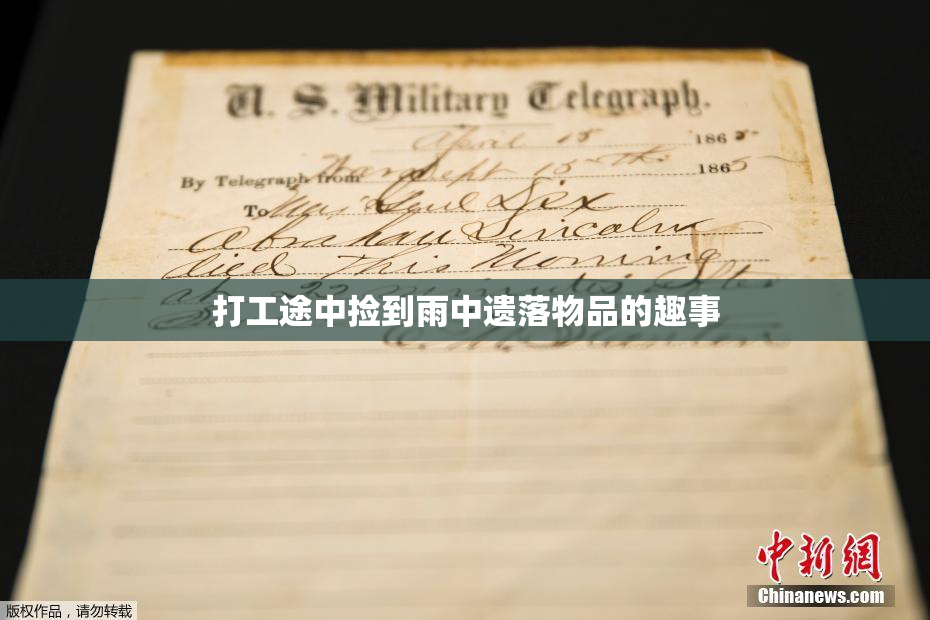 U. S. Military Telegraph.
April 15 1865
By Telegraph from War Dept 15th 1865
To Maj Genl Dix
Abraham Lincoln
died This Morning
at 22 minutes after
打工途中捡到雨中遗落物品的趣事
E. M. Stanton
中新网
Chinanews.com
版权作品，请勿转载